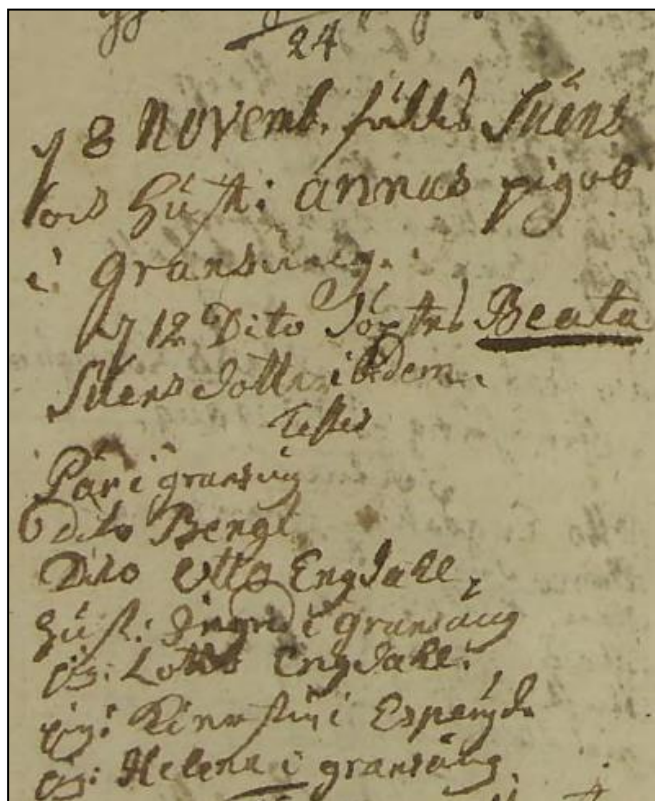 24
8 Novemb. föddes Suens
och Hust: annas pigob
i gransäng.
12 Dito döptes Beata
Suens dotter ibidem.
Testes
Pär i gransäng
Dito Bengt
Dito Otto Engdahl,
Hust: Ingri i gransäng
pig: Lotta Engdahl:
pig: Kierstin i Esperyd
pig: Helena i gransäng